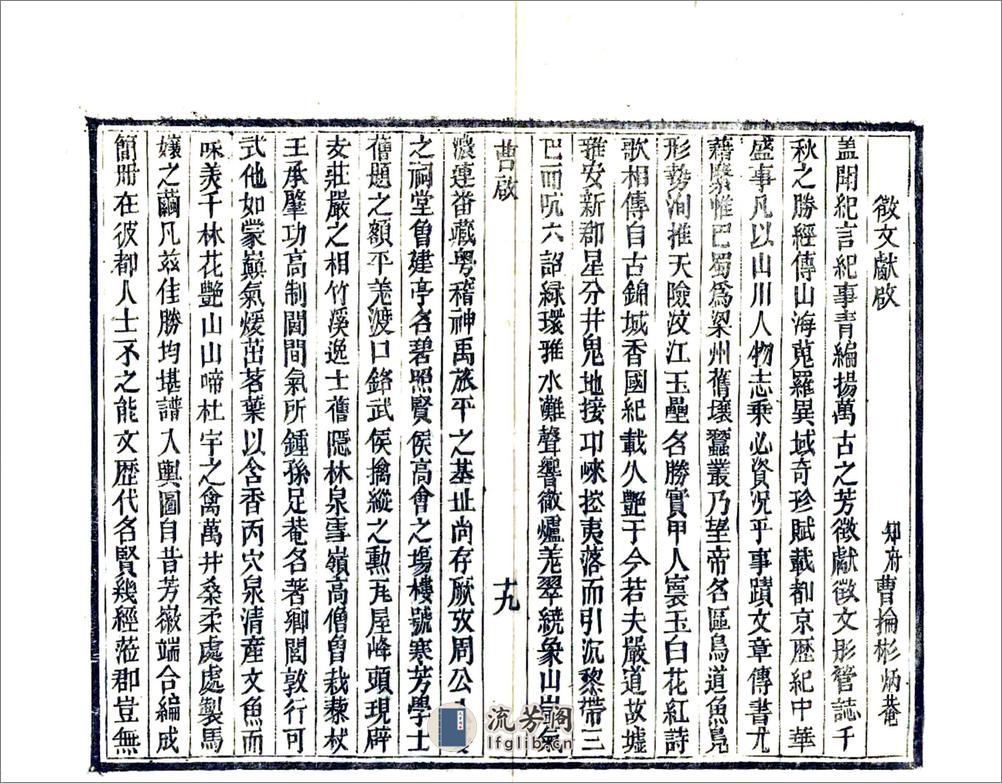 徵文獻啟
知府曹掄彬炳菴
盖聞紀言紀事青編揚萬古之芳徵獻徵文彤管誌千
秋之勝經傳山海蒐羅異域奇珍賦載都京歷紀中華
盛事凡以山川人物志乘必資況乎事蹟文章傳書尤
藉縶惟巴蜀爲梁州舊壤蠶叢乃望帝名區鳥道魚鳧
形勢洵推天險汶江玉壘名勝實甲人寰玉白花紅詩
歌相傳自古錦城香國紀載久艷于今若夫嚴道故墟
雅安新郡星分井鬼地接卭崍控夷落而引沉黎帶三
巴而吭六詔緑環雅水灘聲響徹爐羌翠繞象山嵐氣
曹啟
十九
濃連畨藏粤稽神禹旅平之基址尚存厥攷周公
之祠堂魯建亭名碧照賢侯高會之塲樓號寒芳學士
舊題之額平羌渡口銘武侯擒縱之勲瓦屋峰頭現辟
支莊嚴之相竹溪逸士舊隠林泉雪嶺高僧曽栽藜杖
王承肇功高制閫間氣所鍾孫足菴名著卿閣敦行可
式他如蒙巔氣煖茁茗葉以含香丙穴泉清産文魚而
味美千林花艷山山啼杜宇之禽萬井桑柔處處製馬
孃之繭凡兹佳勝均堪譜入輿圖自昔芳徽端合編成
簡冊在彼都人士不乏能文歷代名賢幾經蒞郡豈無
流芳閣
lfglib.cn